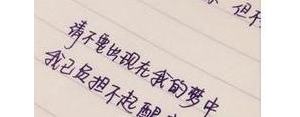 但不
请不要出现在我的梦中
我已负担不起醒